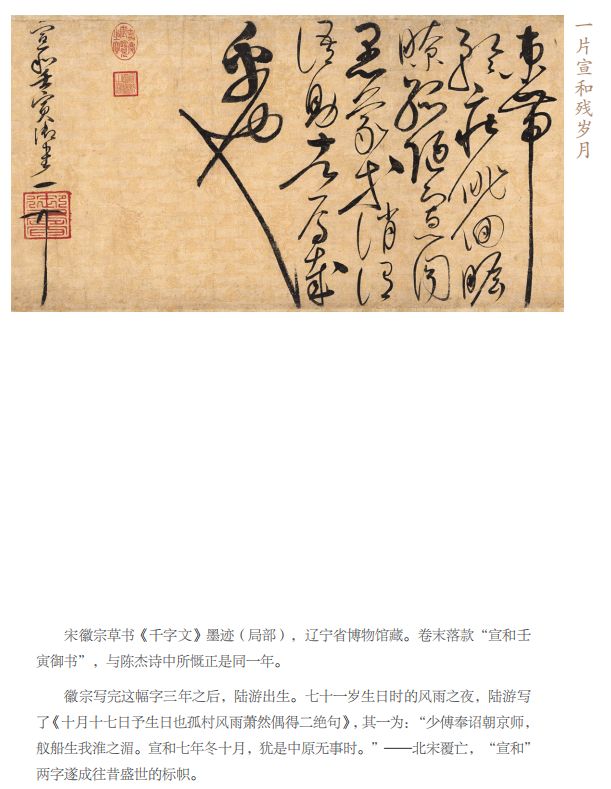 一片宣和残岁月
束帶
矜莊徘徊瞻
眺孤陋寡聞
愚蒙等誚謂
語助者焉哉
乎也
宣和壬寅御書
宋徽宗草书《千字文》墨迹（局部），辽宁省博物馆藏。卷末落款“宣和壬
寅御书”，与陈杰诗中所慨正是同一年。
徽宗写完这幅字三年之后，陆游出生。七十一岁生日时的风雨之夜，陆游写
了《十月十七日予生日也孤村风雨萧然偶得二绝句》，其一为：“少傅奉诏朝京师，
舣船生我淮之湄。宣和七年冬十月，犹是中原无事时。”——北宋覆亡，“宣和”
两字遂成往昔盛世的标帜。